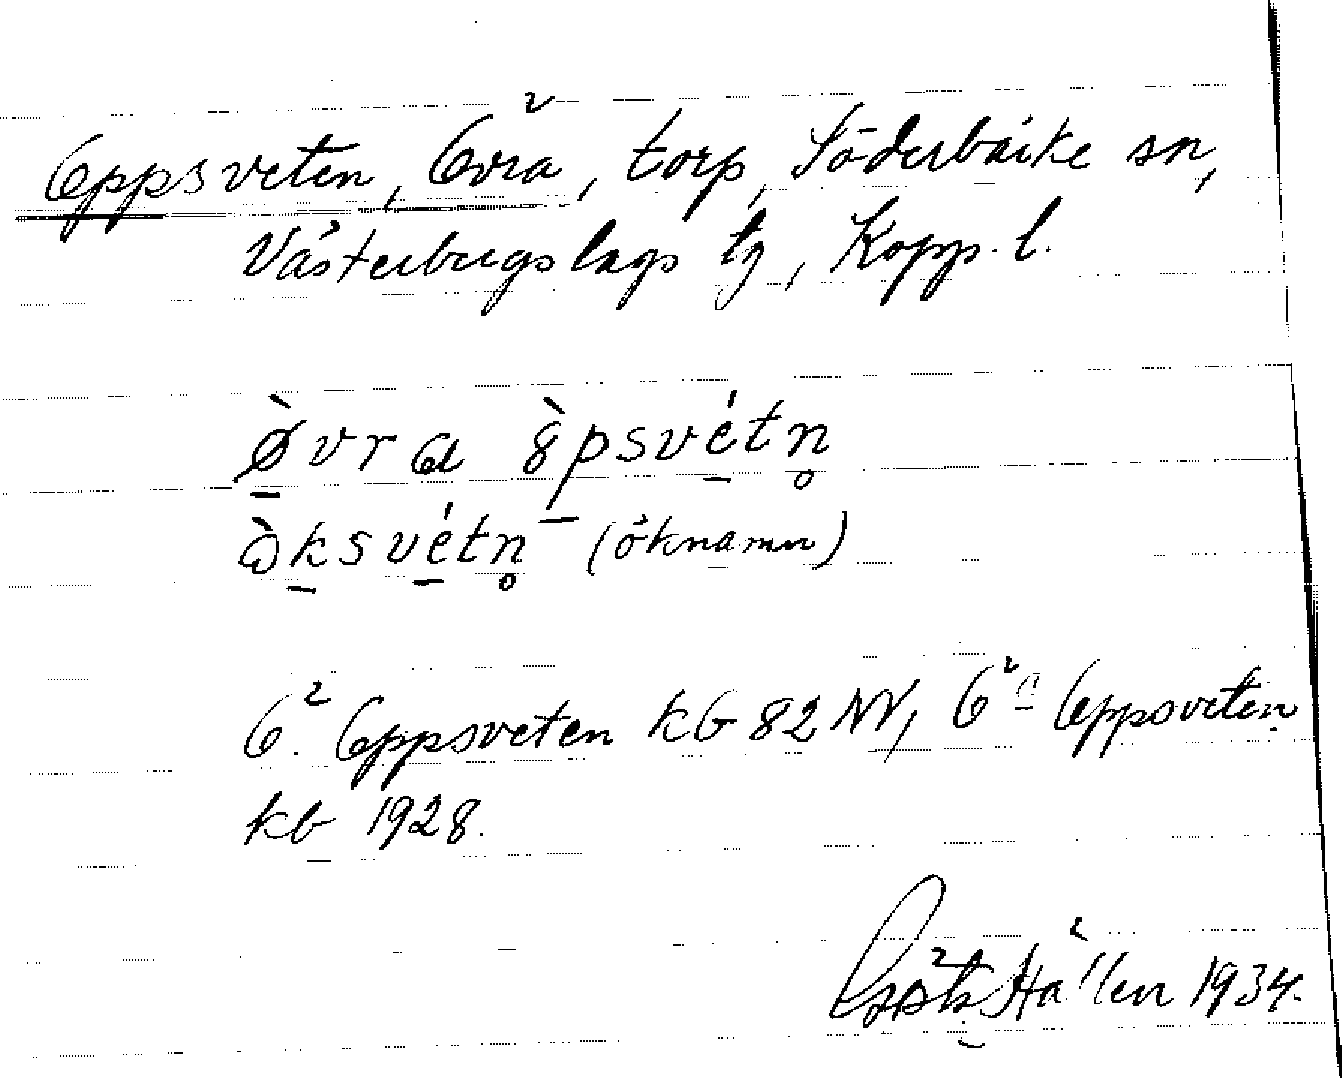 Oppsveten, Övra, torp, Söderbärke sn,
Västerbergslags tg, Kopp. l.
ø̀vra òpsvétn̥
òksvétn̥ (öknamn)
Ö. Oppsveten kG 82 NV, Öa Oppsveten
kb 1928.
Hållen 1934.